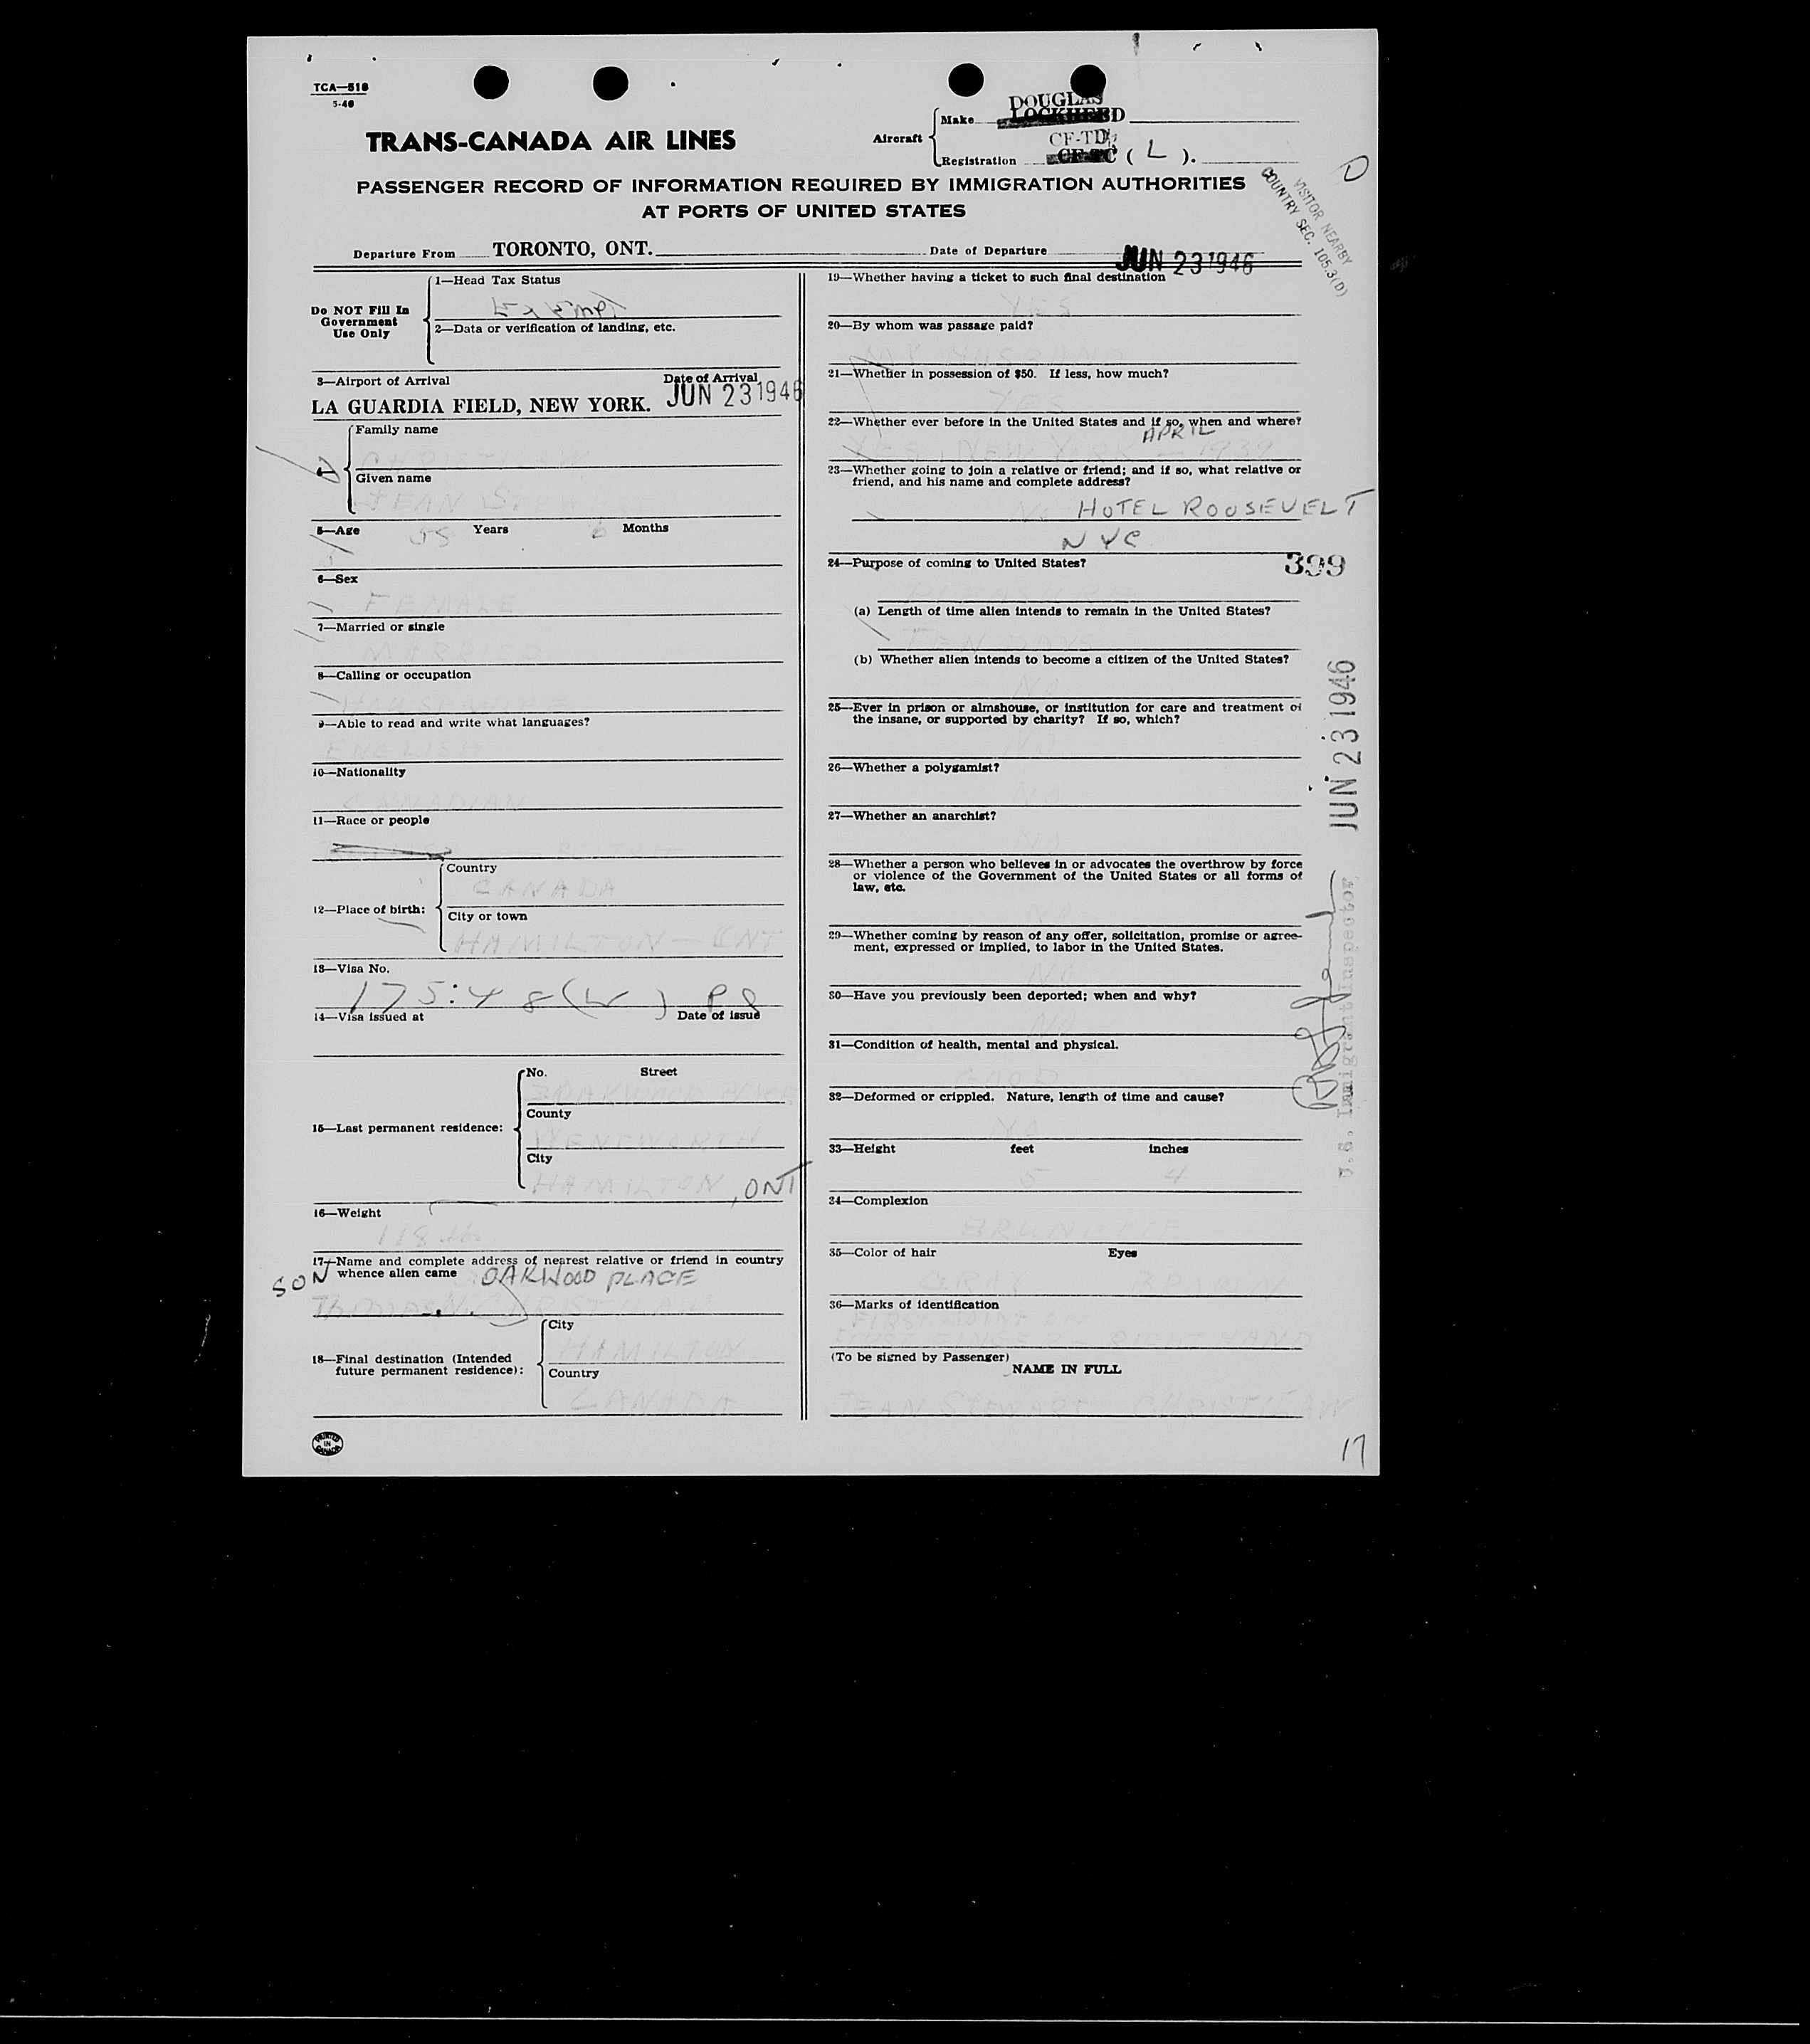 TCA—518
5-46
TRANS-CANADA AIR LINES
Aircraft
Make DOUGLAS
LOCKHEED
Registration CF-TD
CF-TC ( L ).
PASSENGER RECORD OF INFORMATION REQUIRED BY IMMIGRATION AUTHORITIES
AT PORTS OF UNITED STATES
D
VISITOR NEARBY
COUNTRY SEC. 105.3(D)
Departure From TORONTO, ONT.
Date of Departure JUN 23 1946
Do NOT Fill In
Government
Use Only
1—Head Tax Status
Exempt
2—Data or verification of landing, etc.
3—Airport of Arrival Date of Arrival
LA GUARDIA FIELD, NEW YORK. JUN 23 1946
4—
Family name
Given name
JEAN S.
5—Age 55 Years 6 Months
6—Sex
FEMALE
7—Married or single
MARRIED
8—Calling or occupation
HOUSEWIFE
9—Able to read and write what languages?
ENGLISH
10—Nationality
CANADIAN
11—Race or people
12—Place of birth:
Country
CANADA
City or town
HAMILTON — ONT
13—Visa No.
175:48 (W) PP
14—Visa issued at Date of issue
15—Last permanent residence:
No. Street
OAKWOOD PLACE
County
WENTWORTH
City
HAMILTON, ONT
16—Weight
118 lb.
17—Name and complete address of nearest relative or friend in country
whence alien came OAKWOOD PLACE
SON
18—Final destination (Intended
future permanent residence):
City
HAMILTON
Country
CANADA
19—Whether having a ticket to such final destination
YES
20—By whom was passage paid?
MY HUSBAND
21—Whether in possession of $50. If less, how much?
YES
22—Whether ever before in the United States and if so, when and where?
APRIL
YES, NEW YORK — 1939
23—Whether going to join a relative or friend; and if so, what relative or
friend, and his name and complete address?
No HOTEL ROOSEVELT
NYC
24—Purpose of coming to United States?
399
(a) Length of time alien intends to remain in the United States?
TEN DAYS
(b) Whether alien intends to become a citizen of the United States?
NO
25—Ever in prison or almshouse, or institution for care and treatment of
the insane, or supported by charity? If so, which?
NO
26—Whether a polygamist?
NO
27—Whether an anarchist?
NO
28—Whether a person who believes in or advocates the overthrow by force
or violence of the Government of the United States or all forms of
law, etc.
NO
29—Whether coming by reason of any offer, solicitation, promise or agree-
ment, expressed or implied, to labor in the United States.
NO
30—Have you previously been deported; when and why?
NO
31—Condition of health, mental and physical.
GOOD
32—Deformed or crippled. Nature, length of time and cause?
NO
33—Height feet inches
5 4
34—Complexion
BRUNETTE
35—Color of hair Eyes
36—Marks of identification
FIRST JOINT ON
FIRST FINGER - RIGHT HAND
(To be signed by Passenger)
NAME IN FULL
JEAN STEWART CHRISTILAW
JUN 23 1946
U.S. Immigrant Inspector
PRINTED
IN
CANADA
17